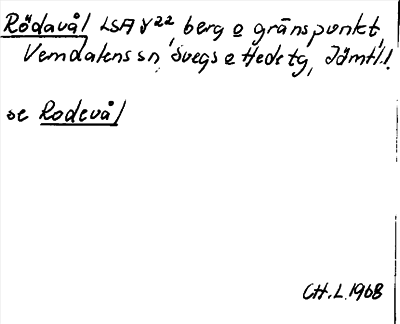 Rödavål LSA V22, berg o gränspunkt,
Vemdalens sn, Svegs o Hede tg, Jämtl.l.
se Rodevål
CH.L. 1968